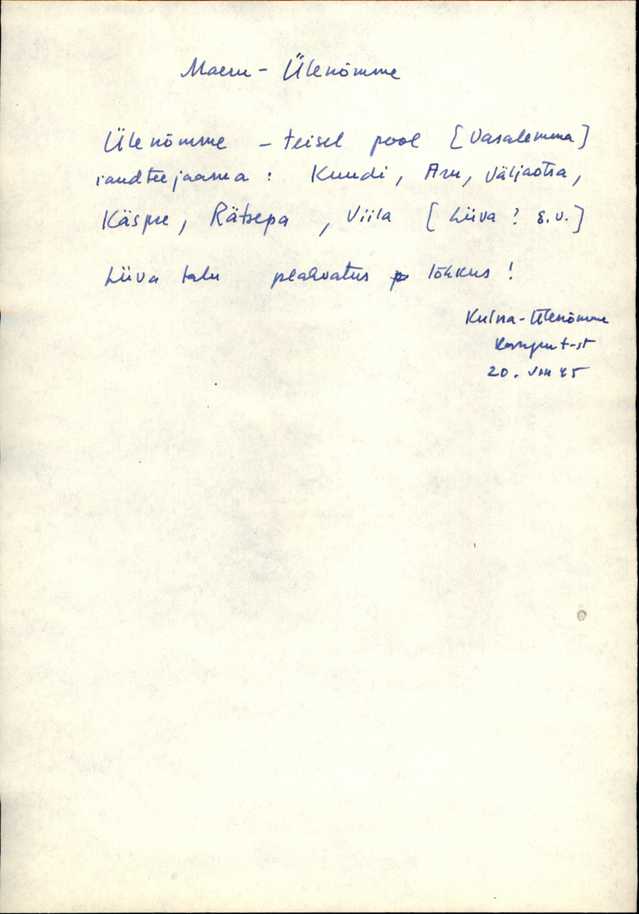 Maeru - Ülenõmme
Ülenõmme - teisel pool [Vasalemma]
raudteejaama : Kuudi, Aru, Väljaotsa,
Käspre, Rätsepa, Viila [Liiva? s.v.]
Liiva talu peahvatus lõhkus!
Kulna-Ülenõmme
20. VIII 45